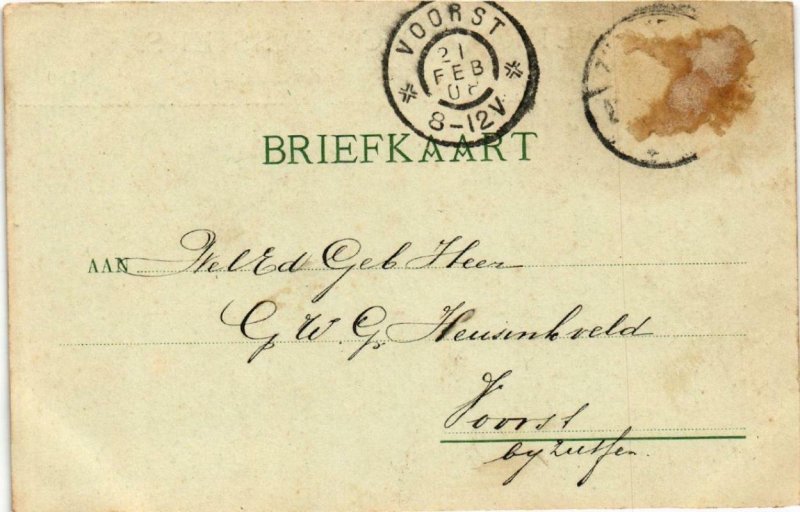 VOORST
21
FEB
8-12V
BRIEFKAART
AAN WelEd Geb Heer
G W G Heusinkveld
Voorst
by Zutfen.